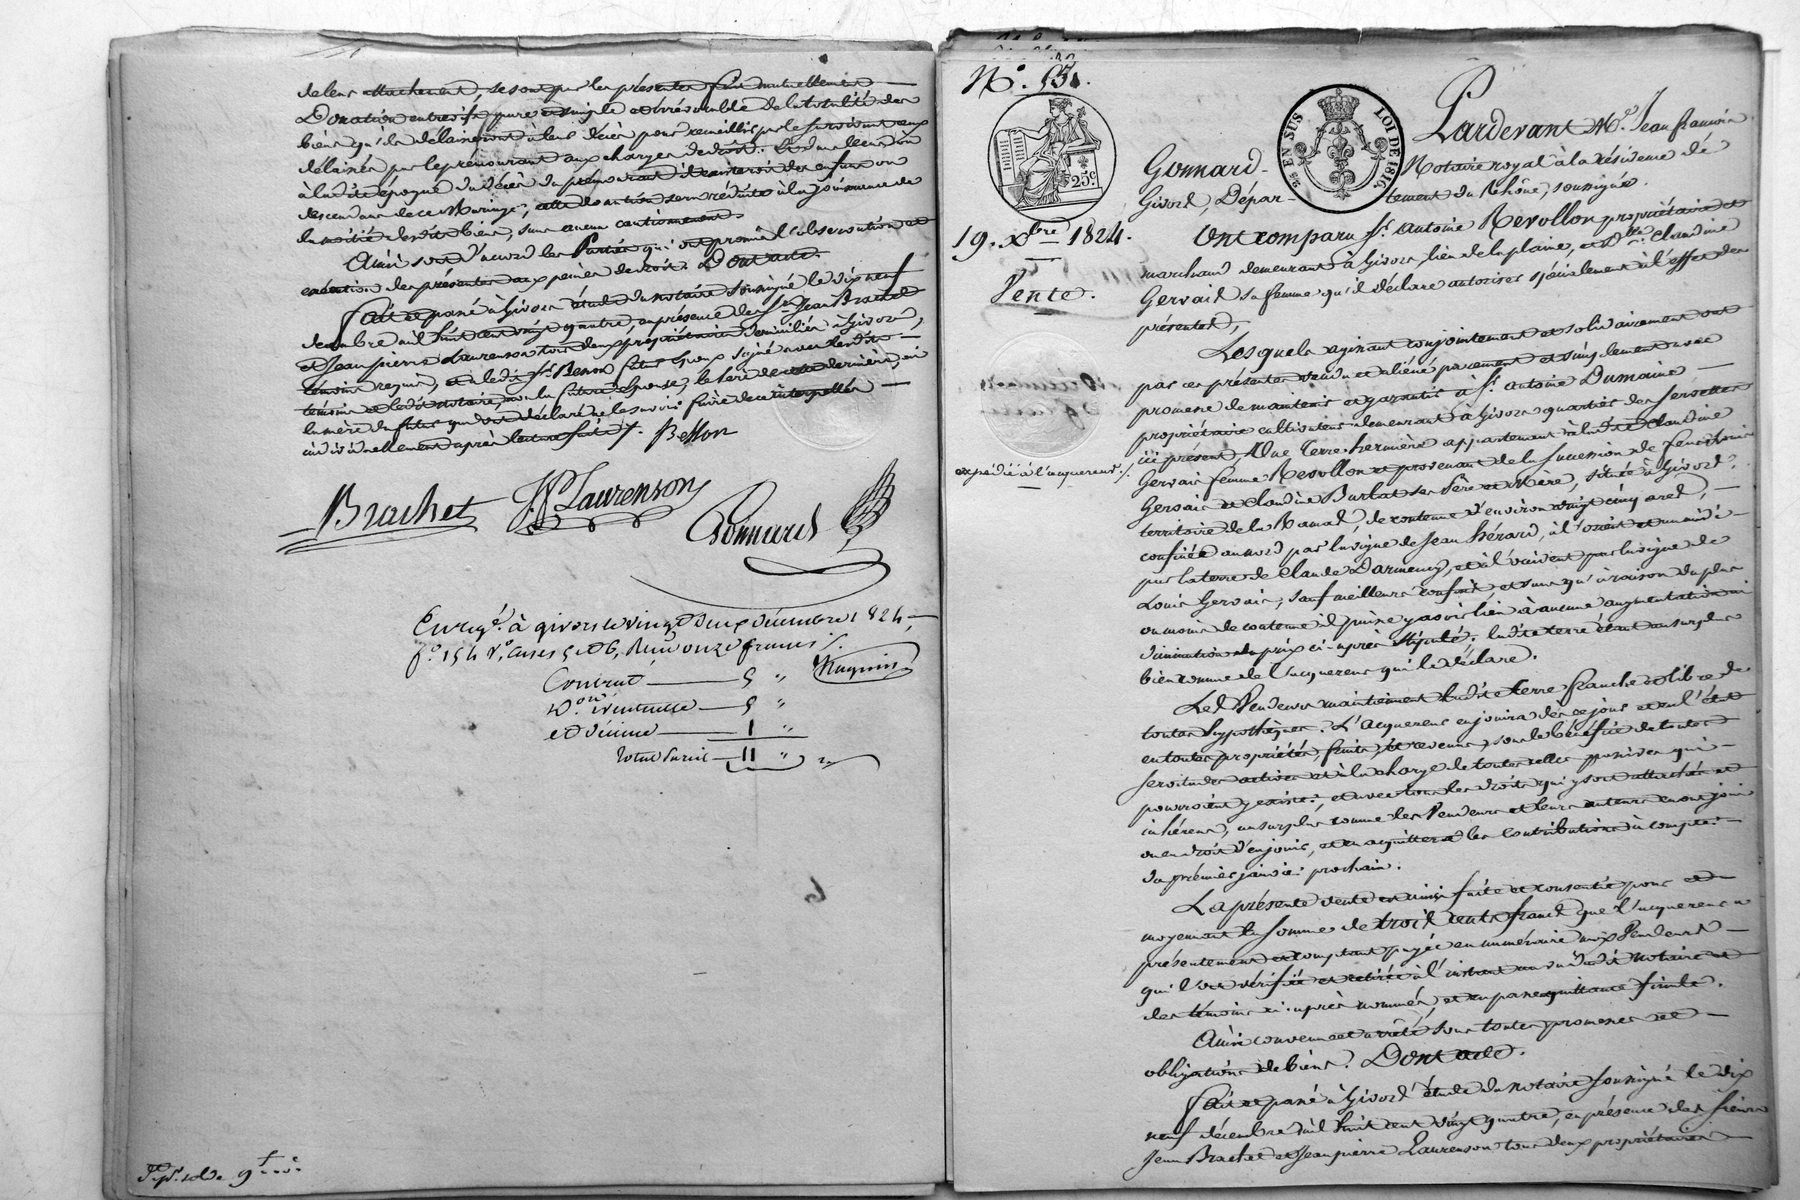 de leur attachement, se sont par les présentes fait mutuellement
Donation entrevifs pure et simple et irrévocable de la totalité des
biens qu'ils délaisseront à leur décès pour recueillir par le survivant eux
délaissés par le prémourant aux charges de droit. Et dans le cas où
à ladite époque du décès du prémourant il existeroit des enfans ou
descendans de ce Mariage, cette donation sera réduite à la jouissance de
la moitié desdits biens, sans aucun cautionnement.
Ainsi sont d'accord les Parties qui ont promis l'observation et
exécution des présentes aux peines de droit. Dont acte.
Fait et passé à Givors étude du notaire soussigné le dix neuf
décembre mil huit cent vingt quatre, en présence des Srs. Jean Brachet
et Jean pierre Laurenson tous deux propriétaires domiciliés à Givors,
témoins requis, et ledit Sr. Bellon futur époux signé avec lesdits
témoins et ledit notaire, non la future épouse, le père de cette dernière, ni
la mère du futur qui ont déclaré ne le savoir faire de ce interpellés
individuellement après lecture faite /. Bellon
Brachet JP Laurenson
Gonnard
Enregé. à givors le vingt deux décembre 1824,
fo. 154 Vo. Cases 5 et 6, Reçu onze francs /.
Contrat 5 "
Don éventuelle 5 "
et décime 1 "
Total Suivi 11 "
No. 951.
25 EN SUS
LOI DE 1816
25c
19. Xbre 1824.
Vente.
expédié à l'acquéreur /.
Pardevant Me. Jean françois
Gonnard Notaire royal à la résidence de
Givors, Département du Rhône, soussigné.
Ont comparu Sr. Antoine Revollon propriétaire et
marchand demeurant à Givors lieu de la plaine, et dlle Claudine
Gervais sa femme qu'il déclare autoriser spécialement à l'effet des
présentes,
Lesquels agissant conjointement et solidairement ont
par ces présentes vendu et aliéné purement et simplement avec
promesse de maintenir et garantir à Sr. antoine Dumaine
propriétaire cultivateur demeurant à Givors quartier des
ici présent, Une Terre hermière appartenant à ladite Claudine
Gervais femme Revollon et provenant de la succession de
Gervais et Claudine Burlat ses Père et Mère, située à Givors,
territoire de la Ramat, de contenue d'environ vingt cinq ares,
confinée au nord par la vigne de Jean Hérard, à l'orient et au midi
par la terre de Claude Darmeny, et à l'occident par la vigne de
Louis Gervais, sauf meilleurs confins, et sans qu'à raison du plus
ou moins de contenue il puisse y avoir lieu à aucune augmentation ni
diminution du prix ci-après stipulé. ladite terre étant au surplus
bien connue de l'acquéreur qui le déclare.
Les Vendeurs maintiennent ladite terre franche et libre de
toutes hypothèques. L'acquéreur en jouira dès ce jour et en l'état
en toutes propriétés, fruits, et revenus, sous le bénéfice de toutes
servitudes actives et à la charge de toutes celles passives qui
pourroient y exister, et avec tous les droits qui y sont attachés et
inhérens, au surplus comme les Vendeurs et leurs auteurs en ont joui
ou eu droit d'en jouir, et en acquittera les contributions à compter
du premier janvier prochain.
La présente vente est ainsi faite et consentie pour et
moyennant la somme de trois cents francs que l'acquéreur a
présentement et comptant payée en numéraire aux Vendeurs
qui l'ont vérifiée et retirée à l'instant au vu dudit notaire et
des témoins ci-après nommés, et en passe quittance finale.
Ainsi convenu et arrêté sous toutes promesses et
obligations de biens. Dont acte.
Fait et passé à Givors étude du notaire soussigné le dix
neuf décembre mil huit cent vingt quatre, en présence des sieurs
Jean Brachet et Jean pierre Laurenson tous deux propriétaires